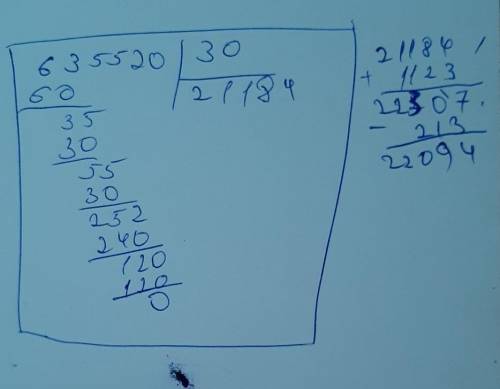 635520 30
60 21184
35
30
55
30
252
240
120
120
0
21184
+ 1123
22307
- 213
22094